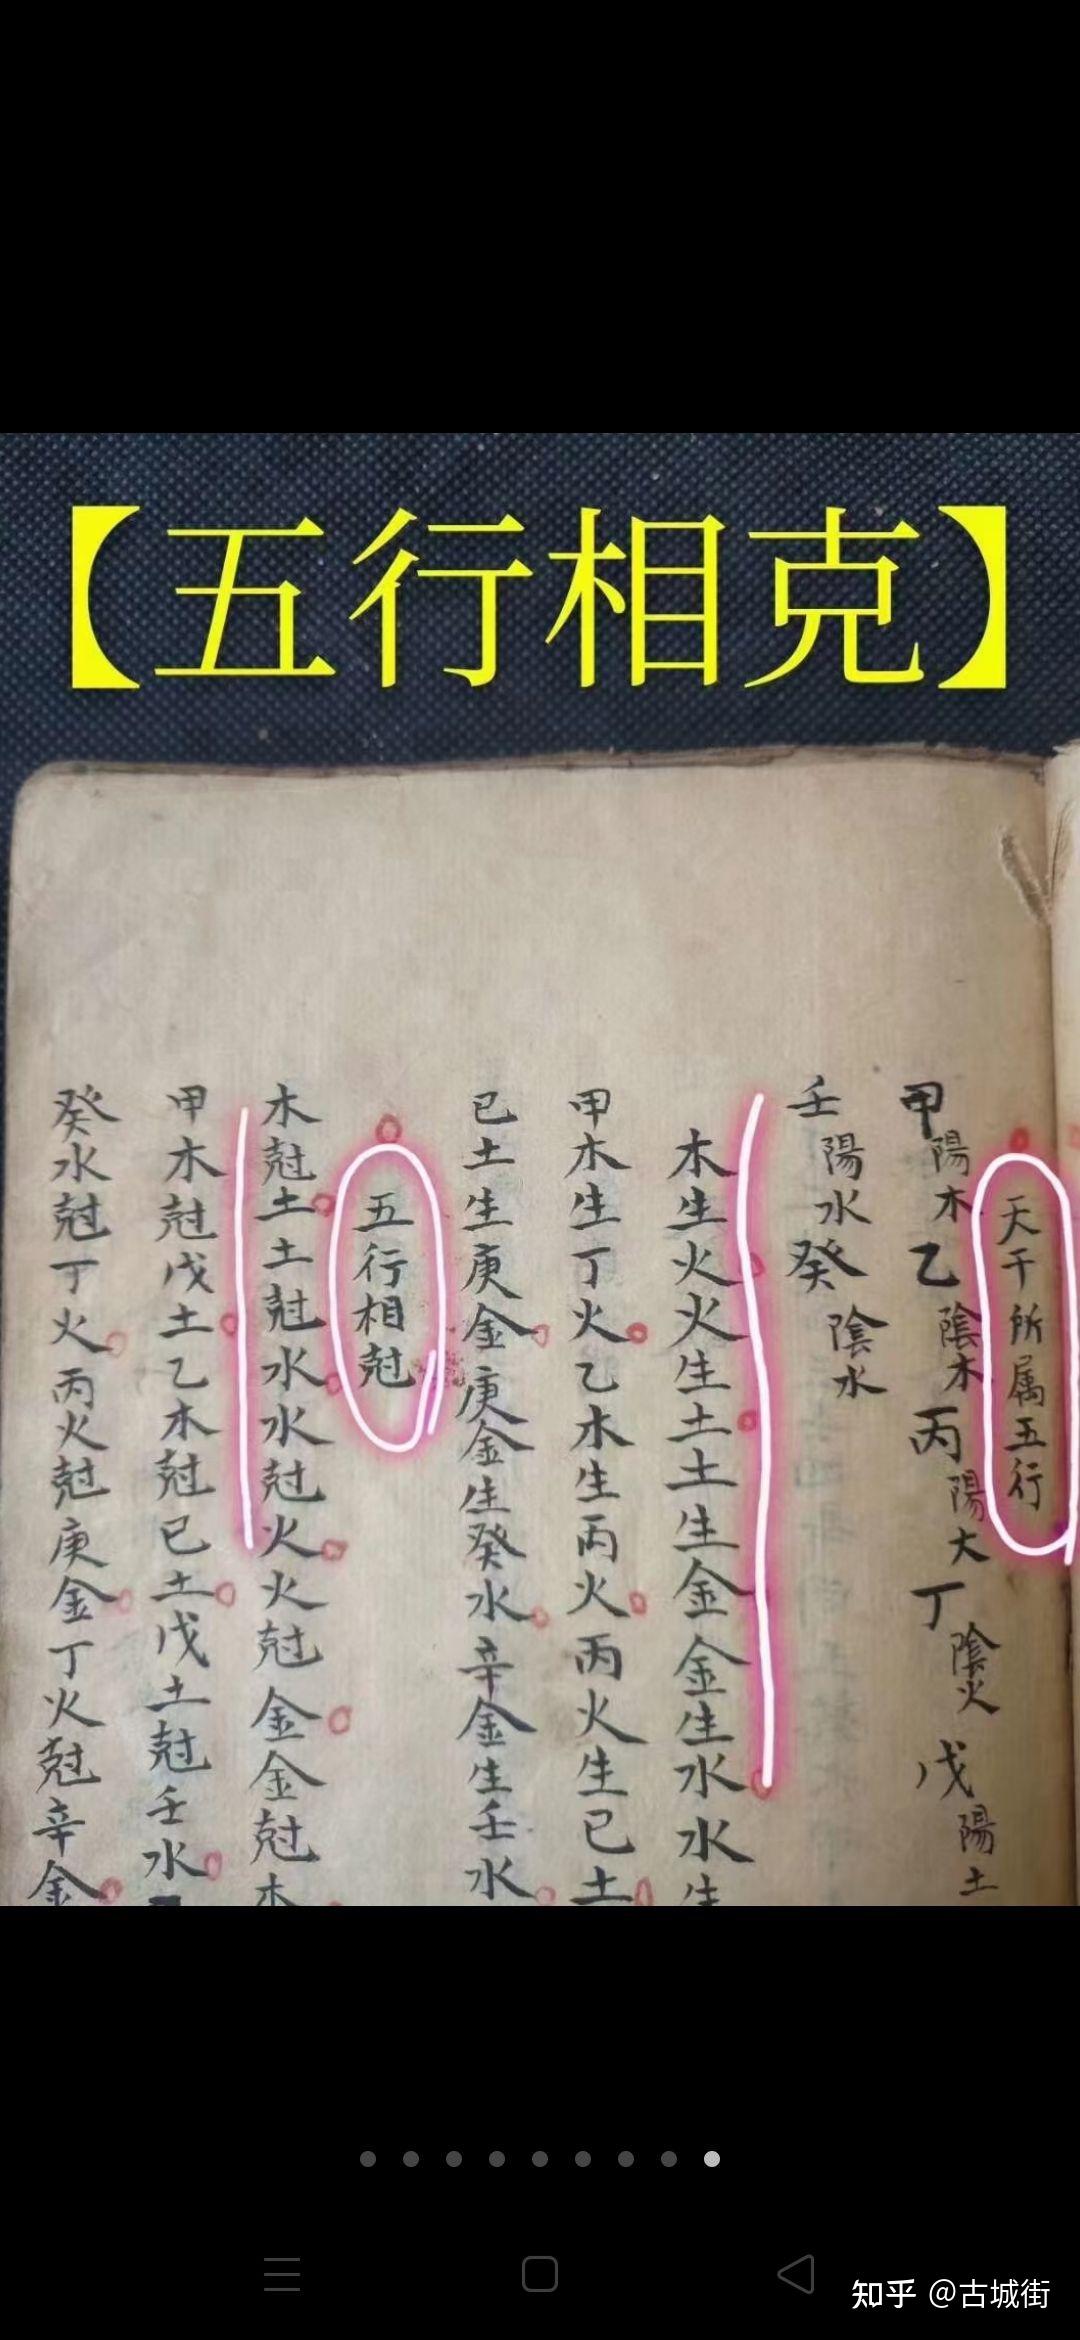 【五行相克】
天干所属五行
甲陽木乙陰木丙陽大丁陰火戊陽土
壬陽水癸陰水
木生火火生土土生金金生水水生
甲木生丁火乙木生丙火丙火生已土
已土生庚金庚金生癸水辛金生壬水
五行相尅
木尅土土尅水水尅火火尅金金尅木
甲木尅戊土乙木尅已土戊土尅壬水
癸水尅丁火丙火尅庚金丁火尅辛金
知乎 @古城街